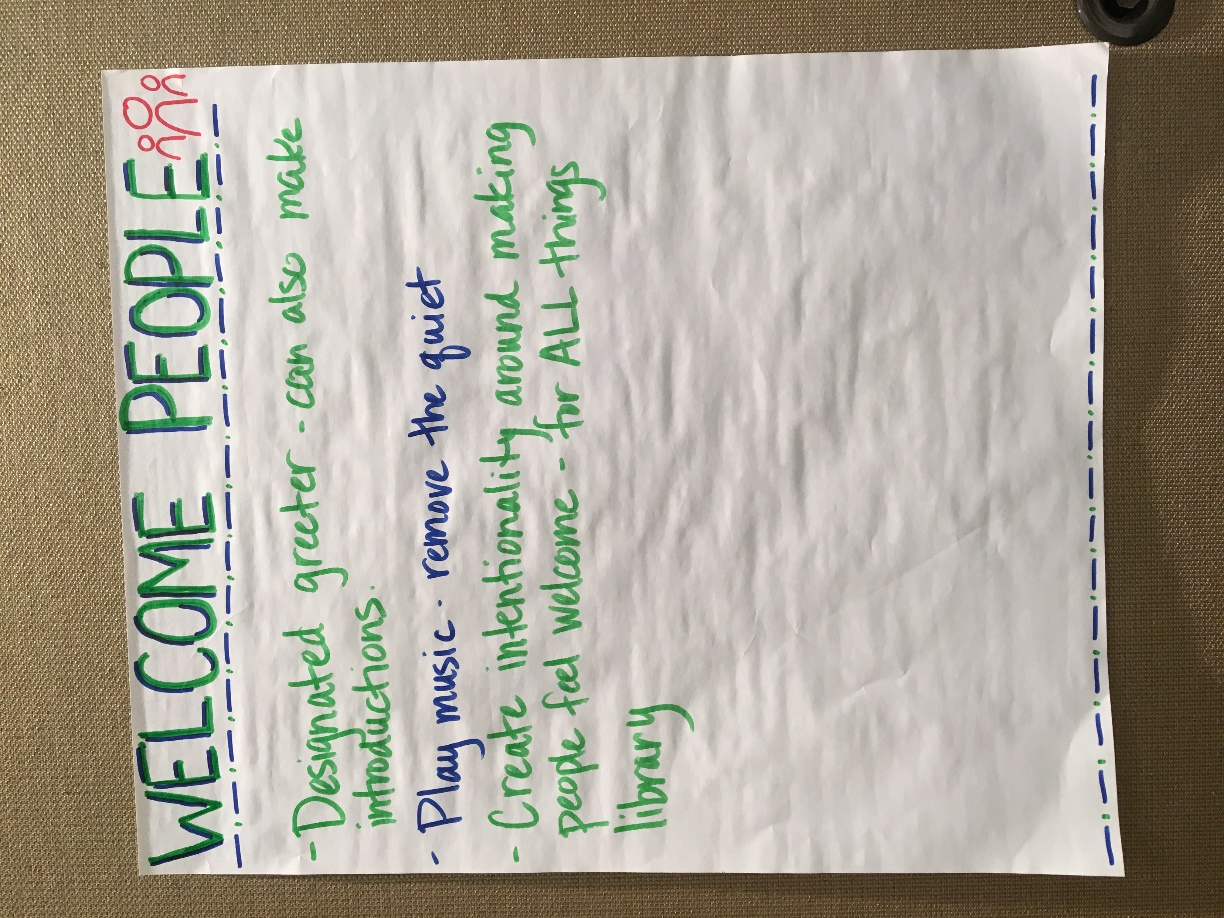 WELCOME PEOPLE
- Designated greeter - can also make
introductions.
- Play music - remove the quiet
- Create intentionality around making
people feel welcome - for ALL things
library